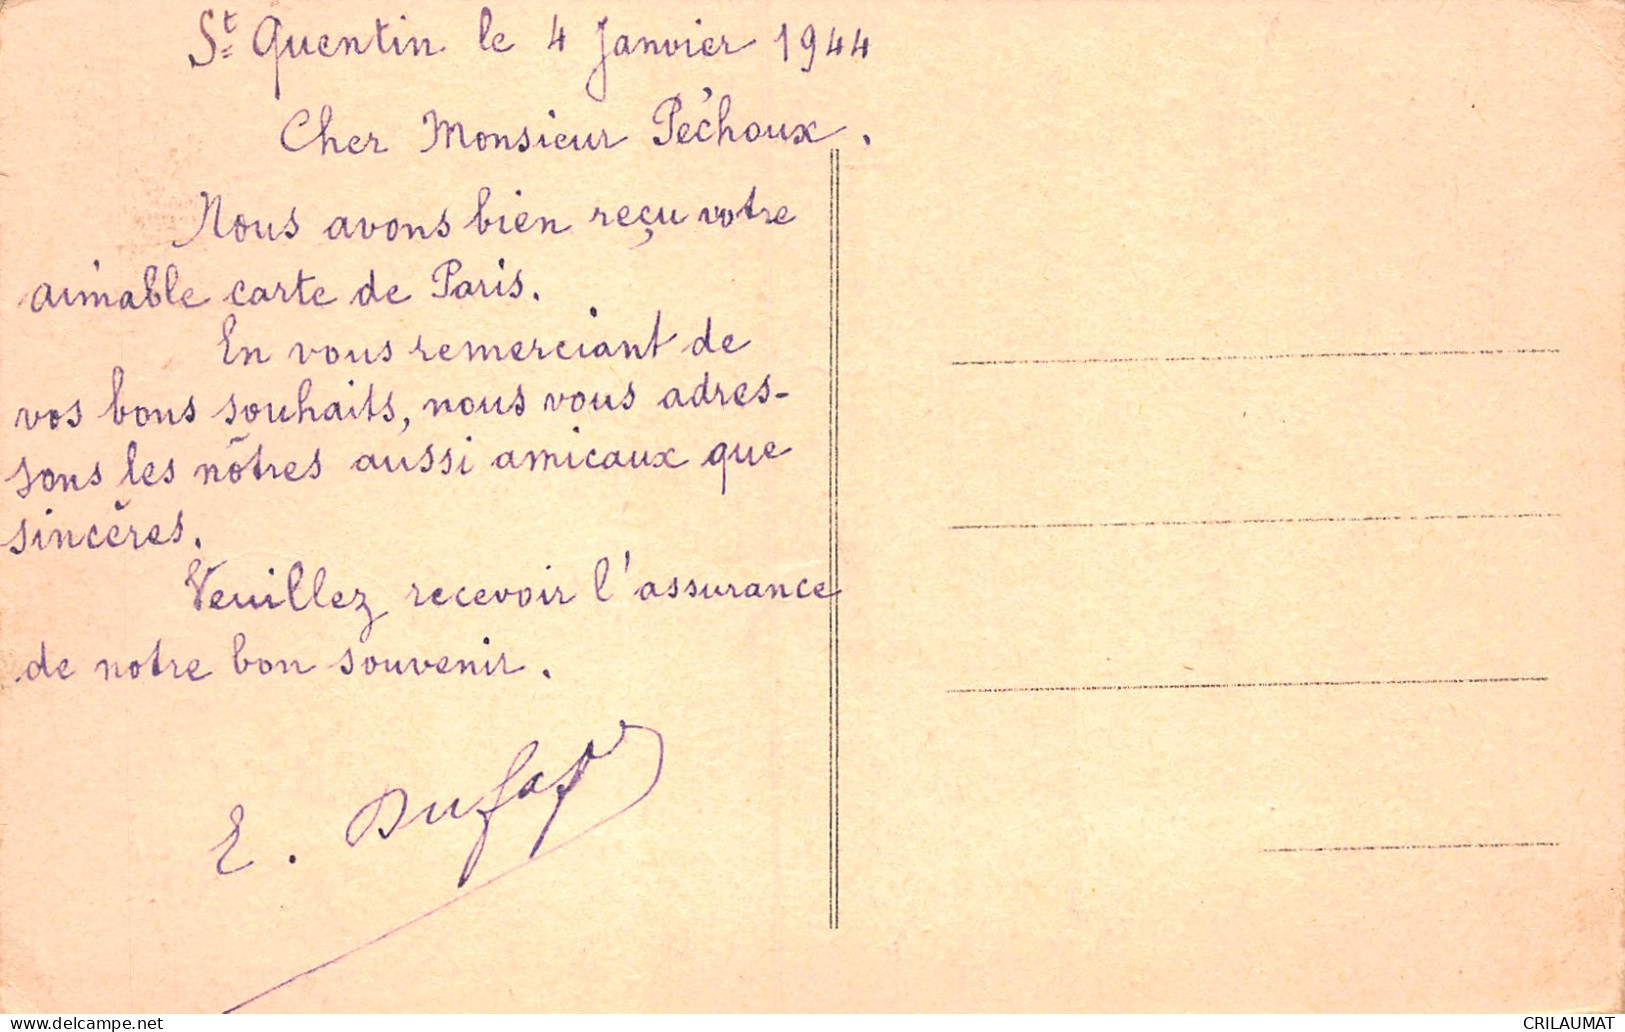 St Quentin le 4 Janvier 1944
Cher Monsieur Péchoux.
Nous avons bien reçu votre
aimable carte de Paris.
En vous remerciant de
vos bons souhaits, nous vous adres-
sons les nôtres aussi amicaux que
sincères.
Veuillez recevoir l'assurance
de notre bon souvenir.
E.
delcampe.net
CRILAUMAT